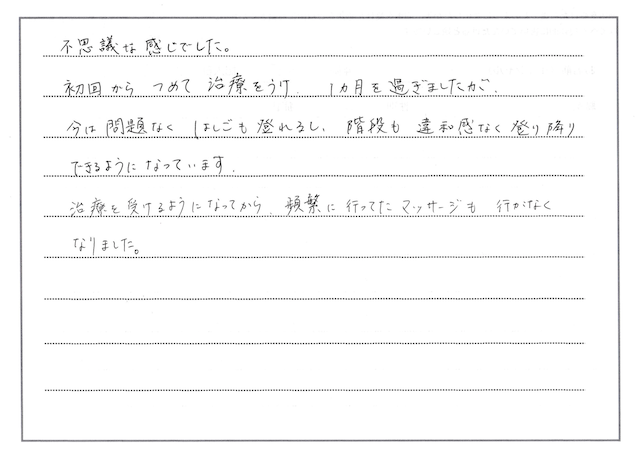 不思議な感じでした。
初回から つめて 治療をうけ、 1カ月を過ぎましたが、
今は問題なく はしごも登れるし、 階段も 違和感なく登り降り
できるようになっています。
治療を受けるようになってから、頻繁に行ってたマッサージも 行かなく
なりました。